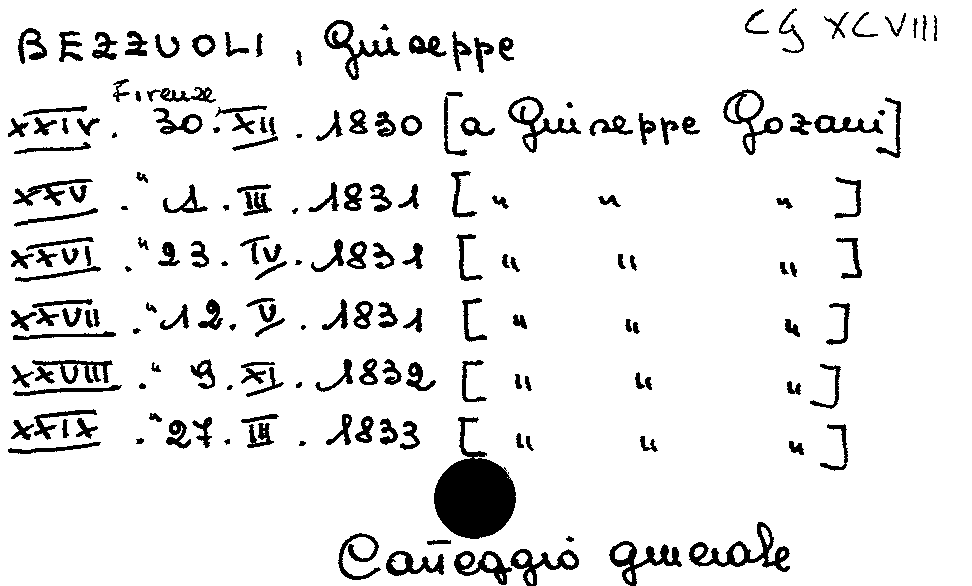 BEZZUOLI, Giuseppe CG XCVIII
XXIV. Firenze, 30. XII. 1830 [a Giuseppe Gozani]
XXV. " 1. III. 1831 [ " " " ]
XXVI. " 23. IV. 1831 [ " " " ]
XXVII. " 12. V. 1831 [ " " " ]
XXVIII. " 9. XI. 1832 [ " " " ]
XXIX. " 27. III. 1833 [ " " " ]
Carteggio generale